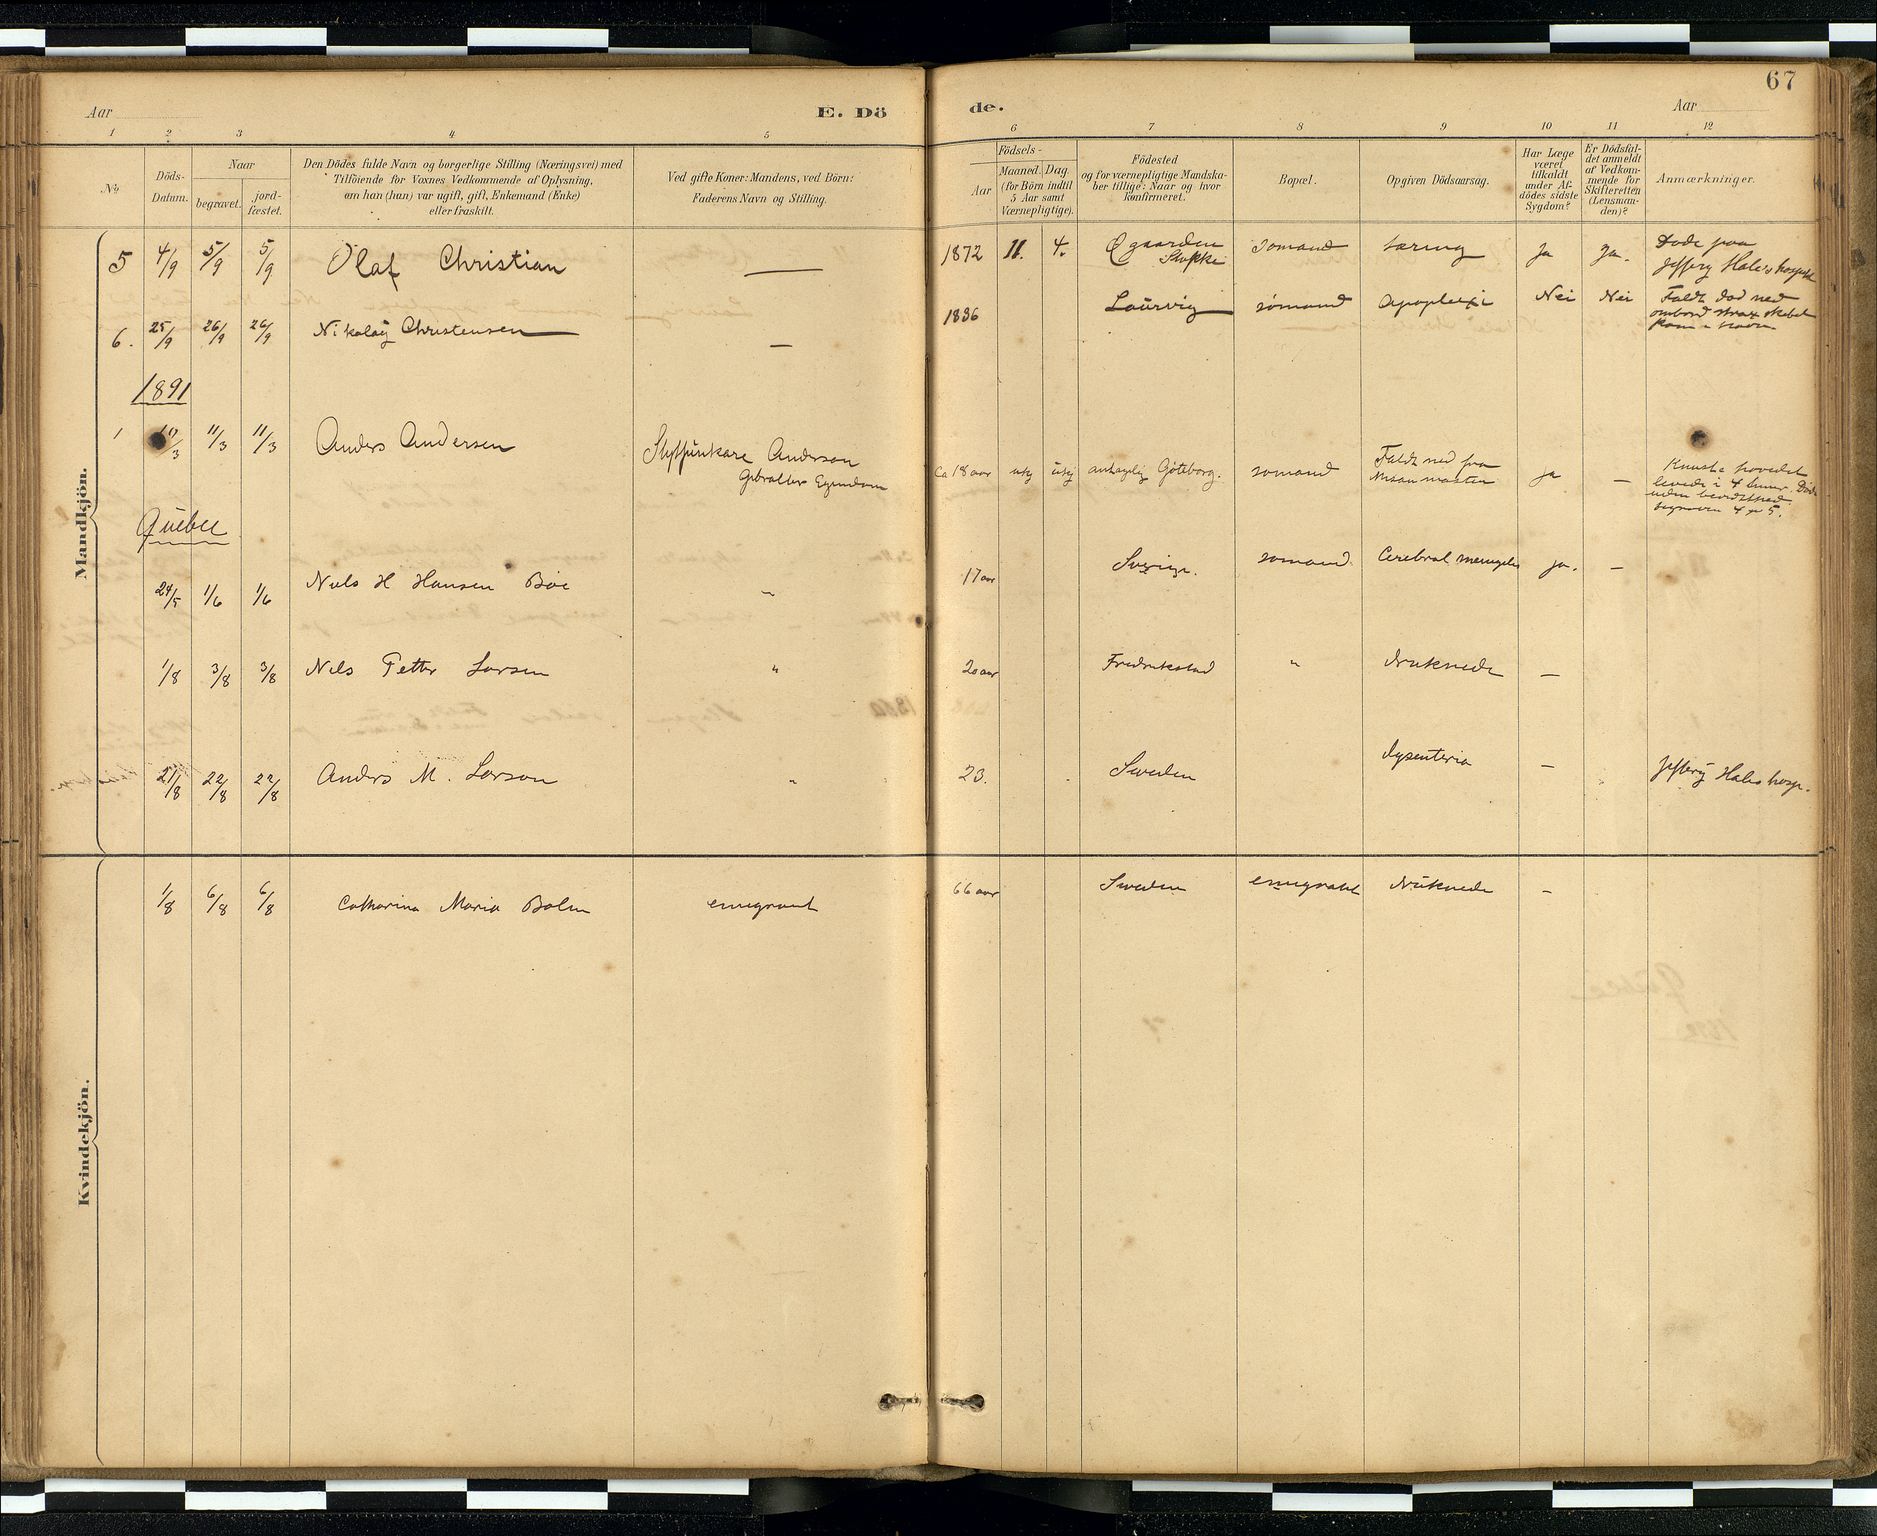 67
Aar E. Dö de. Aar
1 2 3 4 5 6 7 8 9 10 11 12
No.
Döds-
Datum.
Naar
begravet.
jord-
fæstet.
Den Dödes fulde Navn og borgerlige Stilling (Næringsvei) med
Tilföiende for Voxnes Vedkommende af Oplysning,
om han (hun) var ugift, gift, Enkemand (Enke)
eller fraskilt.
Ved gifte Koner: Mandens, ved Börn:
Faderens Navn og Stilling.
Födsels-
Aar
Maaned.
Dag
(for Börn indtil
5 Aar samt
Værnepligtige).
Födested
og for værnepligtige Mandska-
ber tillige: Naar og hvor
konfirmeret.
Bopæl.
Opgiven Dödsaarsag.
Har Læge
været
tilkaldt
under Af-
dödes sidste
Sygdom?
Er Dödsfal-
det anmeldt
af Vedkom-
mende for
Skifteretten
(Lensman-
den)?
Anmærkninger.
Mandkjön.
5 4/9 5/9 5/9 Olaf Christian — 1872 11. 4. Øgaarden
Stokke
Sømand tæring Ja Ja. Døde paa
Jeffery Hales hospital
6. 25/9 26/9 26/9 Nikolay Christensen — 1836 Laurvig sømand Apoplexi Nei Nei Faldt død ned
ombord strax skibet
kom i havn
1891
1 11/3 11/3 Anders Andersen
Anderson
Gibralter Egendom
ca 18 aar antagelig Göteborg. sømand Faldt ned fra
Mesan masten
ja — Knuste hovedet
levede i 4 timer. Død
uden bevidsthed
Quebec
24/5 1/6 1/6 Niels H Hansen Boe " 17 aar Sverige. sømand. Cerebral ja. —
1/8 3/8 3/8 Nels Petter Larsen " 20 aar Fredrikstad " druknede —
21/8 22/8 22/8 Anders M. Larson " 23. Sweden dysenteria — Jeffery Hales hosp.
Kvindekjön.
1/8 6/8 6/8 Catharina Maria Bolin emigrant 66 aar Sweden emigrant druknede —